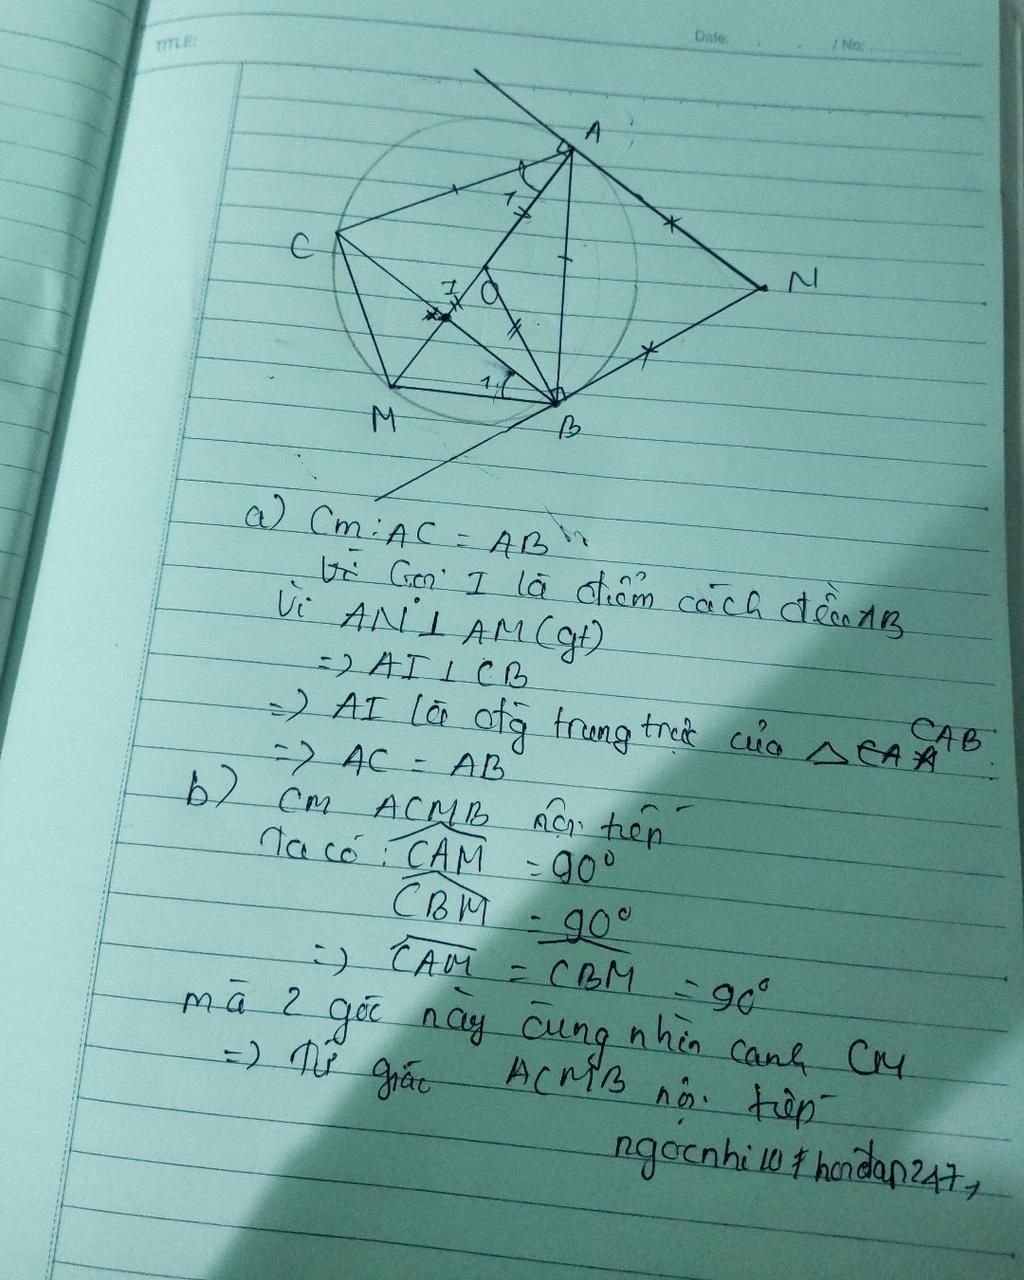 TITLE:
Date: . . / No:
A
C
1
N
I
O
1
M
B
a) Cm: AC = AB
Vì Gọi I là điểm cách đều AB
Vì AN ⊥ AM (gt)
=> AI ⊥ CB
=> AI là đg trung trực của Δ CAB
=> AC = AB
b) Cm ACMB nội tiếp
Ta có: CAM = 90°
CBM = 90°
=> CAM = CBM = 90°
mà 2 góc này cùng nhìn cạnh CM
=> Tứ giác ACMB nội tiếp
ngocnhi10 hoidap247